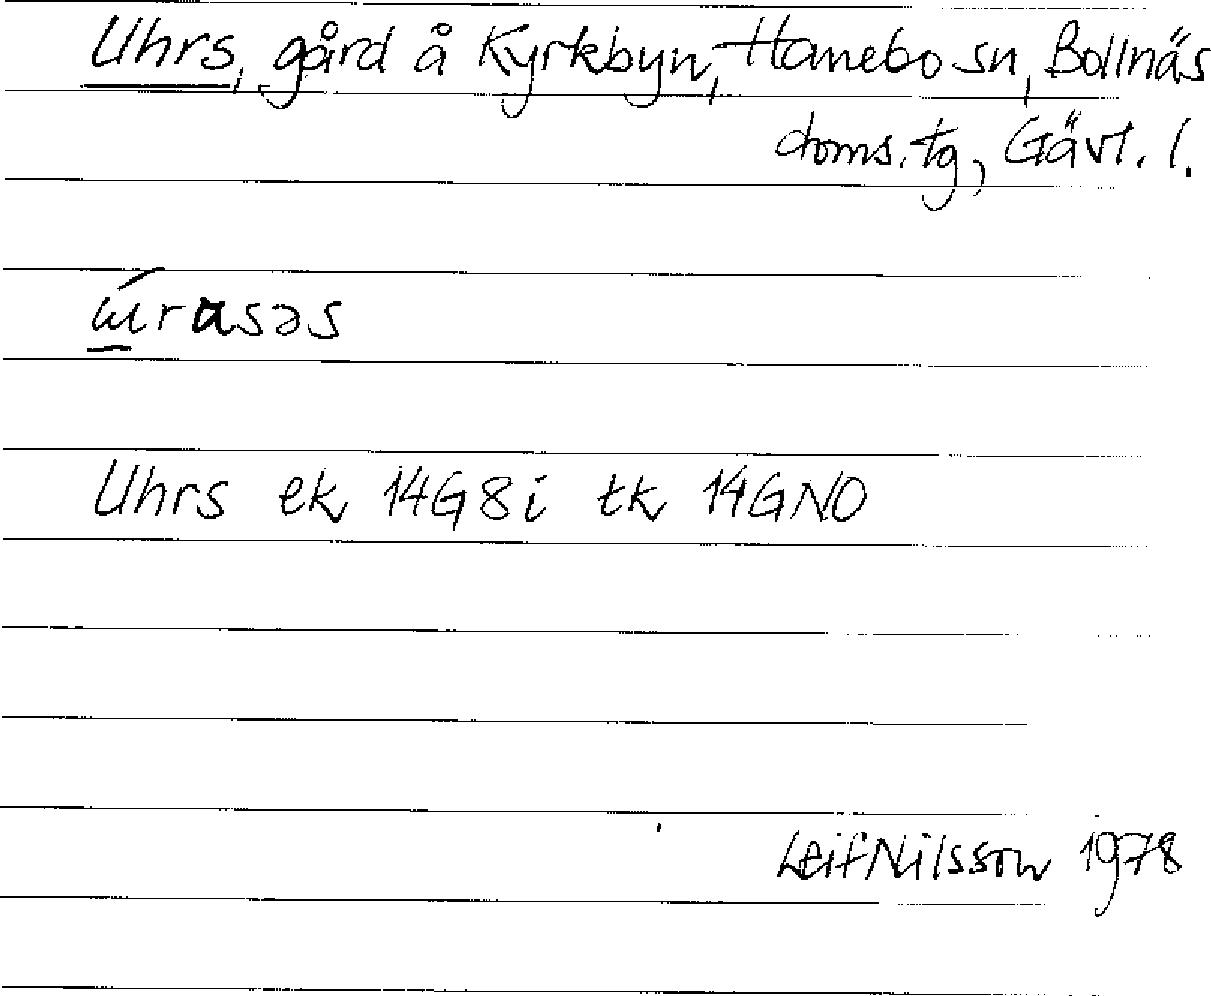 Uhrs, gård å Kyrkbyn, Hanebo sn, Bollnäs
doms.tg, Gävl. l.
ɯ́rasəs
Uhrs ek 14G8i tk 14GNO
Leif Nilsson 1978